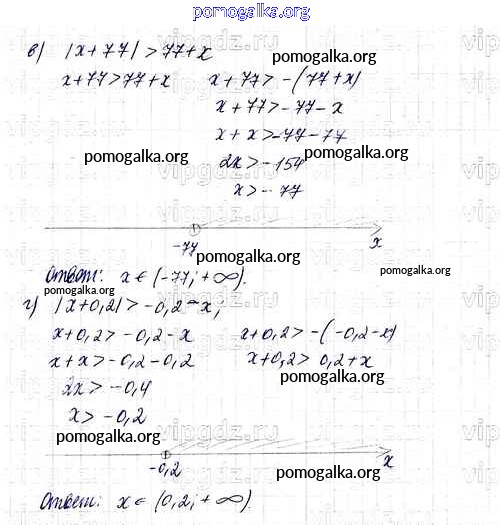 pomogalka.org
в) |x+77| > 77+x
x+77 > 77+x x+77 > -(77+x)
x+77 > -77-x
x+x > -77-77
2x > -154
x > -77
-77 x
Ответ: x ∈ (-77; +∞).
г) |x+0,2| > -0,2-x;
x+0,2 > -0,2-x x+0,2 > -(-0,2-x)
x+x > -0,2-0,2 x+0,2 > 0,2+x
2x > -0,4
x > -0,2
-0,2 x
Ответ: x ∈ (0,2; +∞).
pomogalka.org
pomogalka.org
pomogalka.org
pomogalka.org
pomogalka.org
pomogalka.org
pomogalka.org
pomogalka.org
pomogalka.org